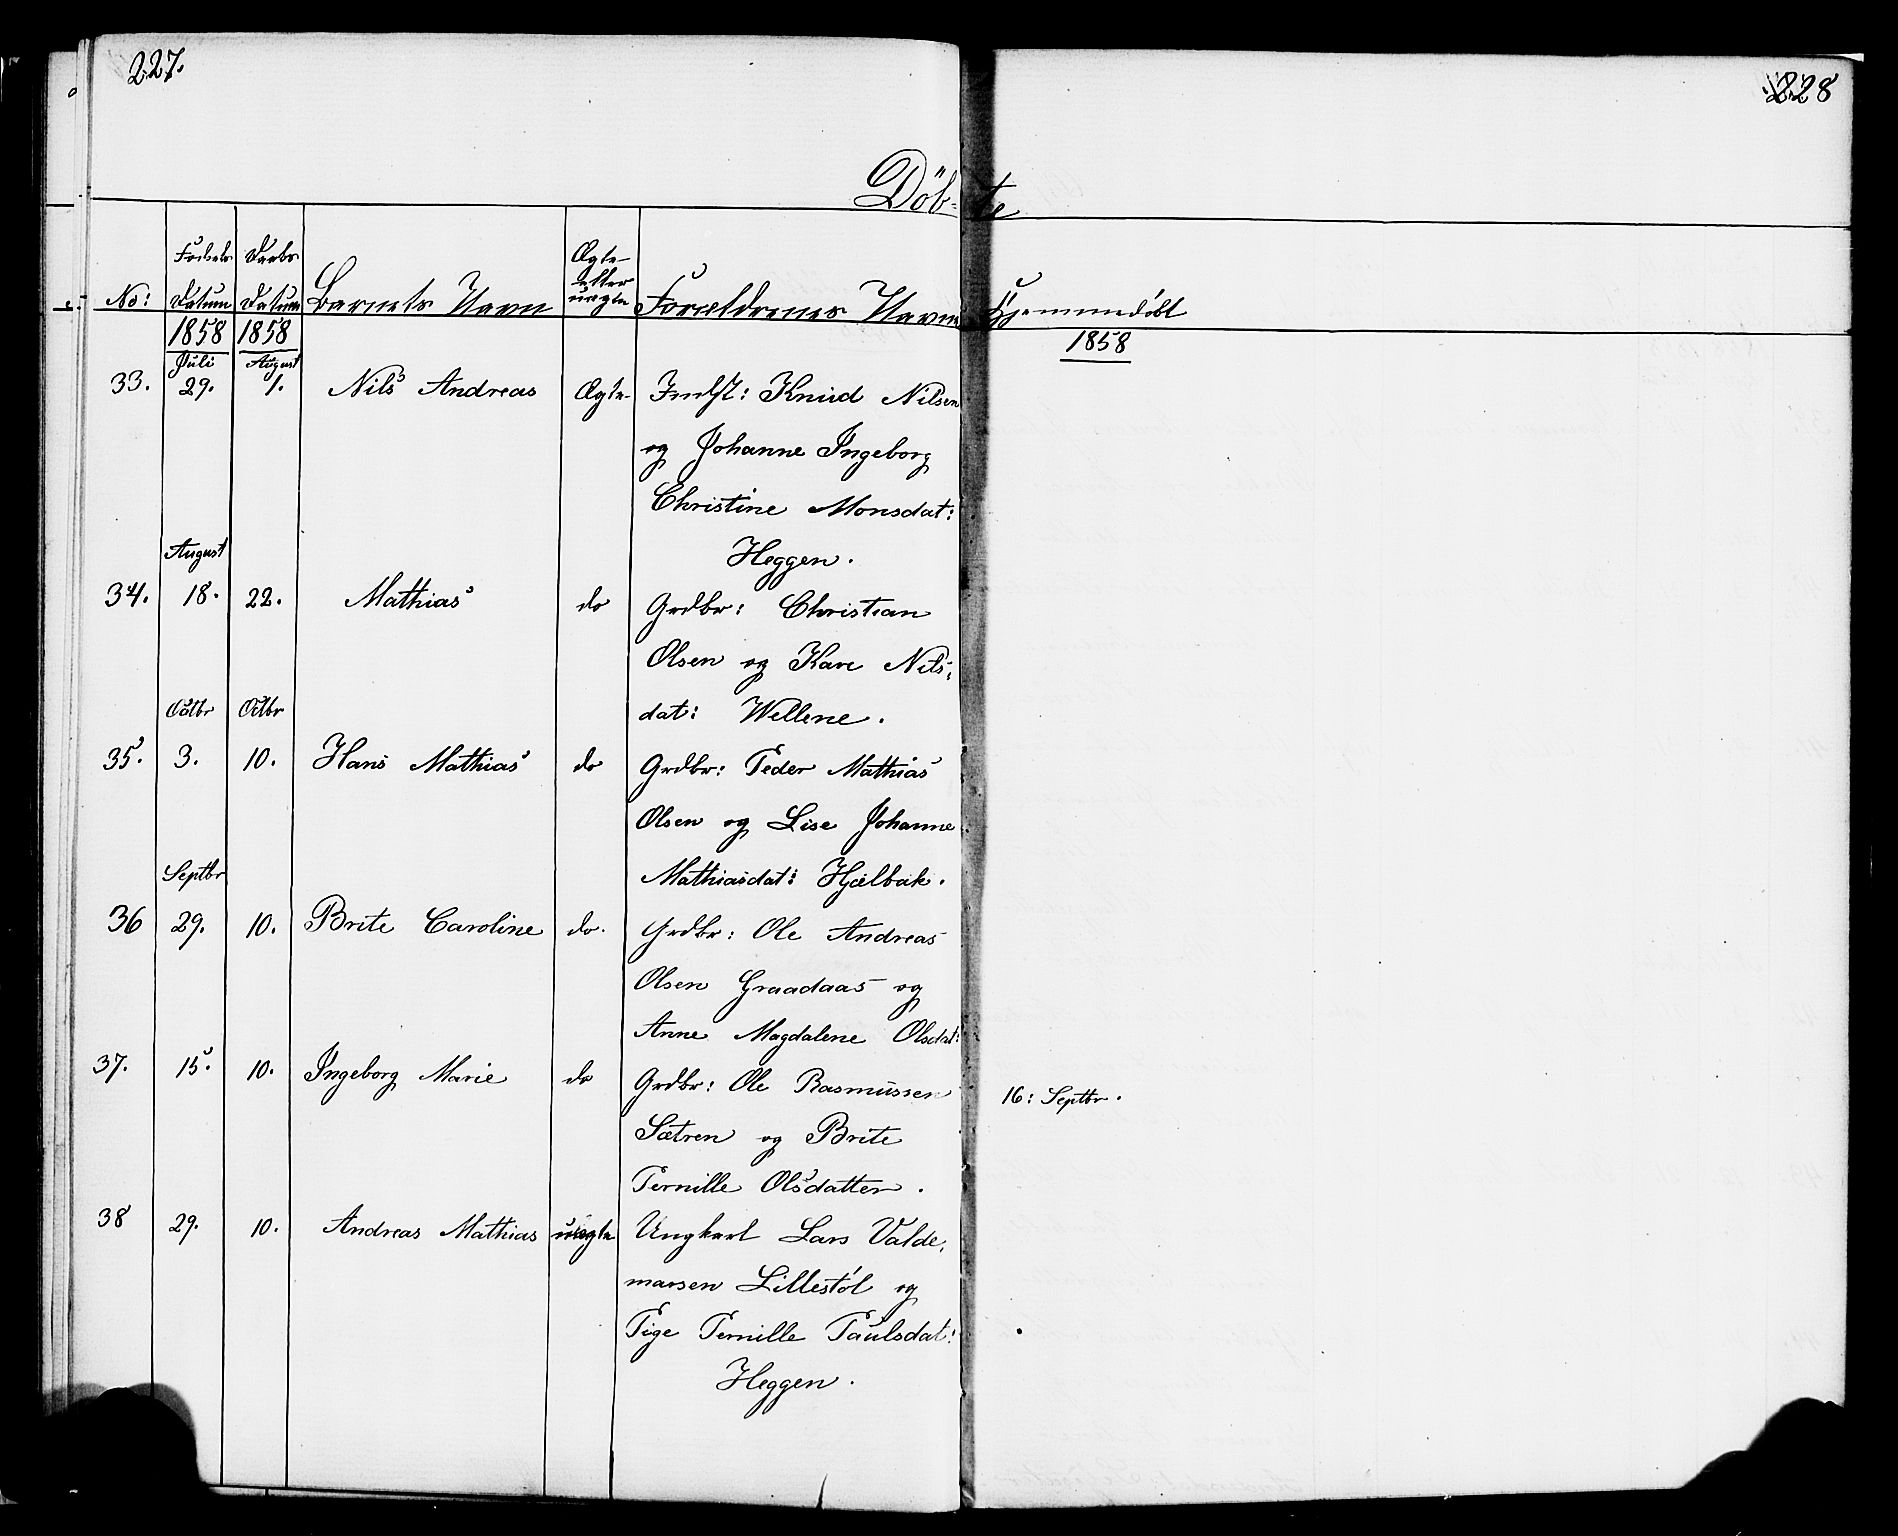 227.
228
Döb-te
No: Fødsels Datum Daabs Datum Barnets Navn Ægte eller uægte Forældrenes Navne Hjemmedöbt
1858 1858 1858
Juli August
33. 29. 1. Nils Andreas Ægte Indst: Knud Nilsen
og Johanne Ingeborg
Christine Monsdat:
August Heggen.
34. 18. 22. Mathias do Grdbr: Christian
Olsen og Kare Nils-
Octbr Octbr dat: Wellene.
35. 3. 10. Hans Mathias do Grdbr: Peder Mathias
Olsen og Lise Johanne
Septbr Mathiasdat: Hjælbak.
36 29. 10. Brite Caroline do. Grdbr: Ole Andreas
Olsen Graadaas og
Anne Magdalene Olsdat:
37. 15. 10. Ingeborg Marie do Grdbr: Ole Rasmussen 16: Septbr.
Sætren og Brite
Pernille Olsdatter.
38 29. 10. Andreas Mathias uægte Ungkarl Lars Valde-
marsen Lillestöl og
Pige Pernille Paulsdat:
Heggen.